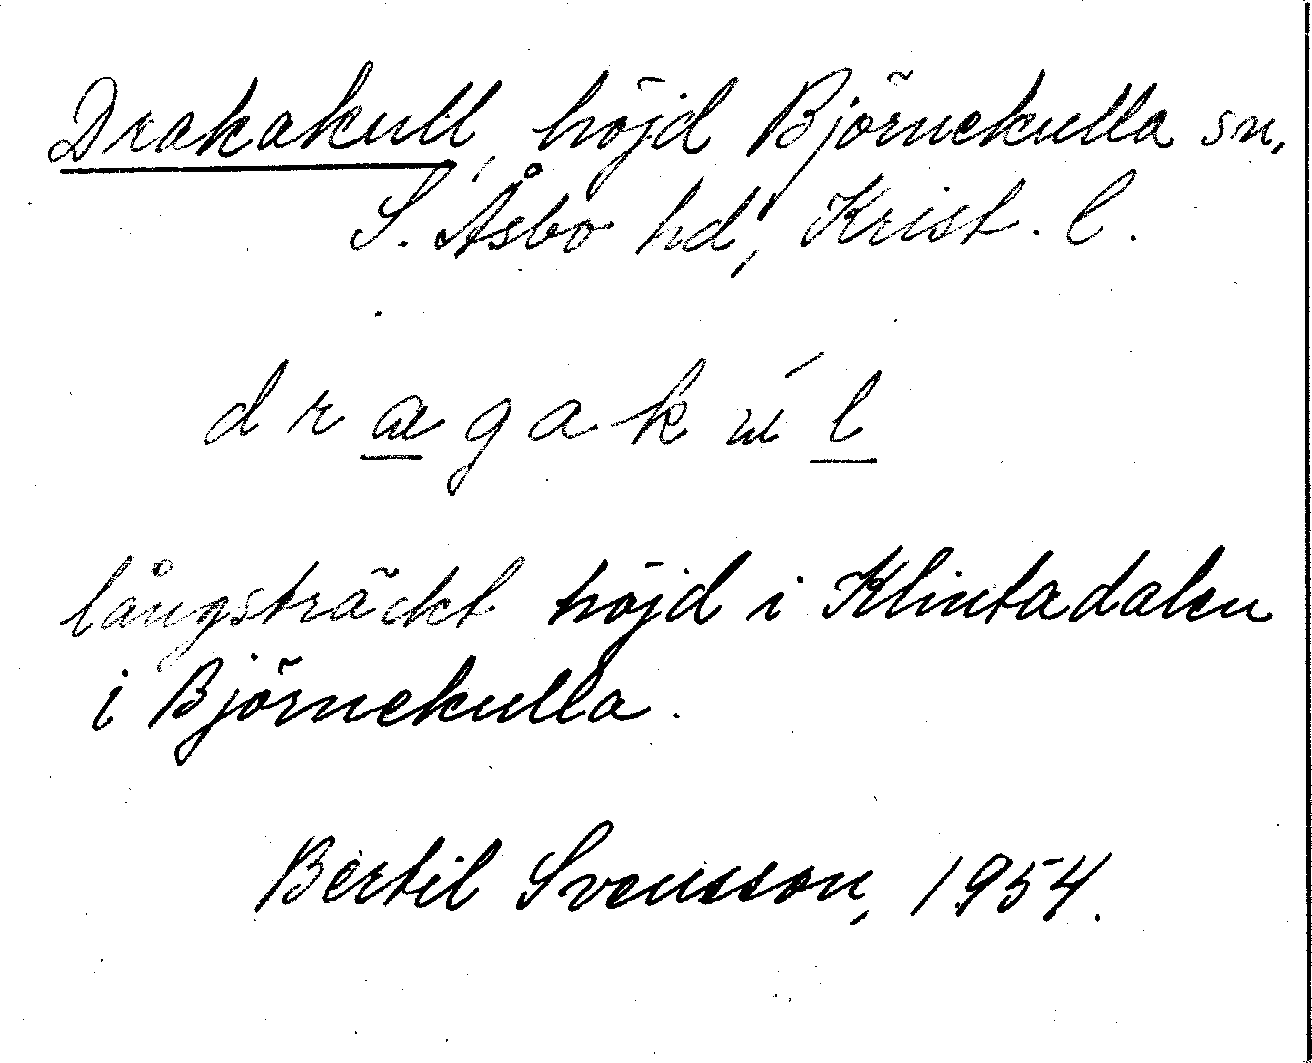 Drakakull, höjd Björnekulla sn,
S. Åsbo hd, Krist. l.
drægakúl
långsträckt höjd i Klintadalen
i Björnekulla.
Bertil Svensson, 1954.